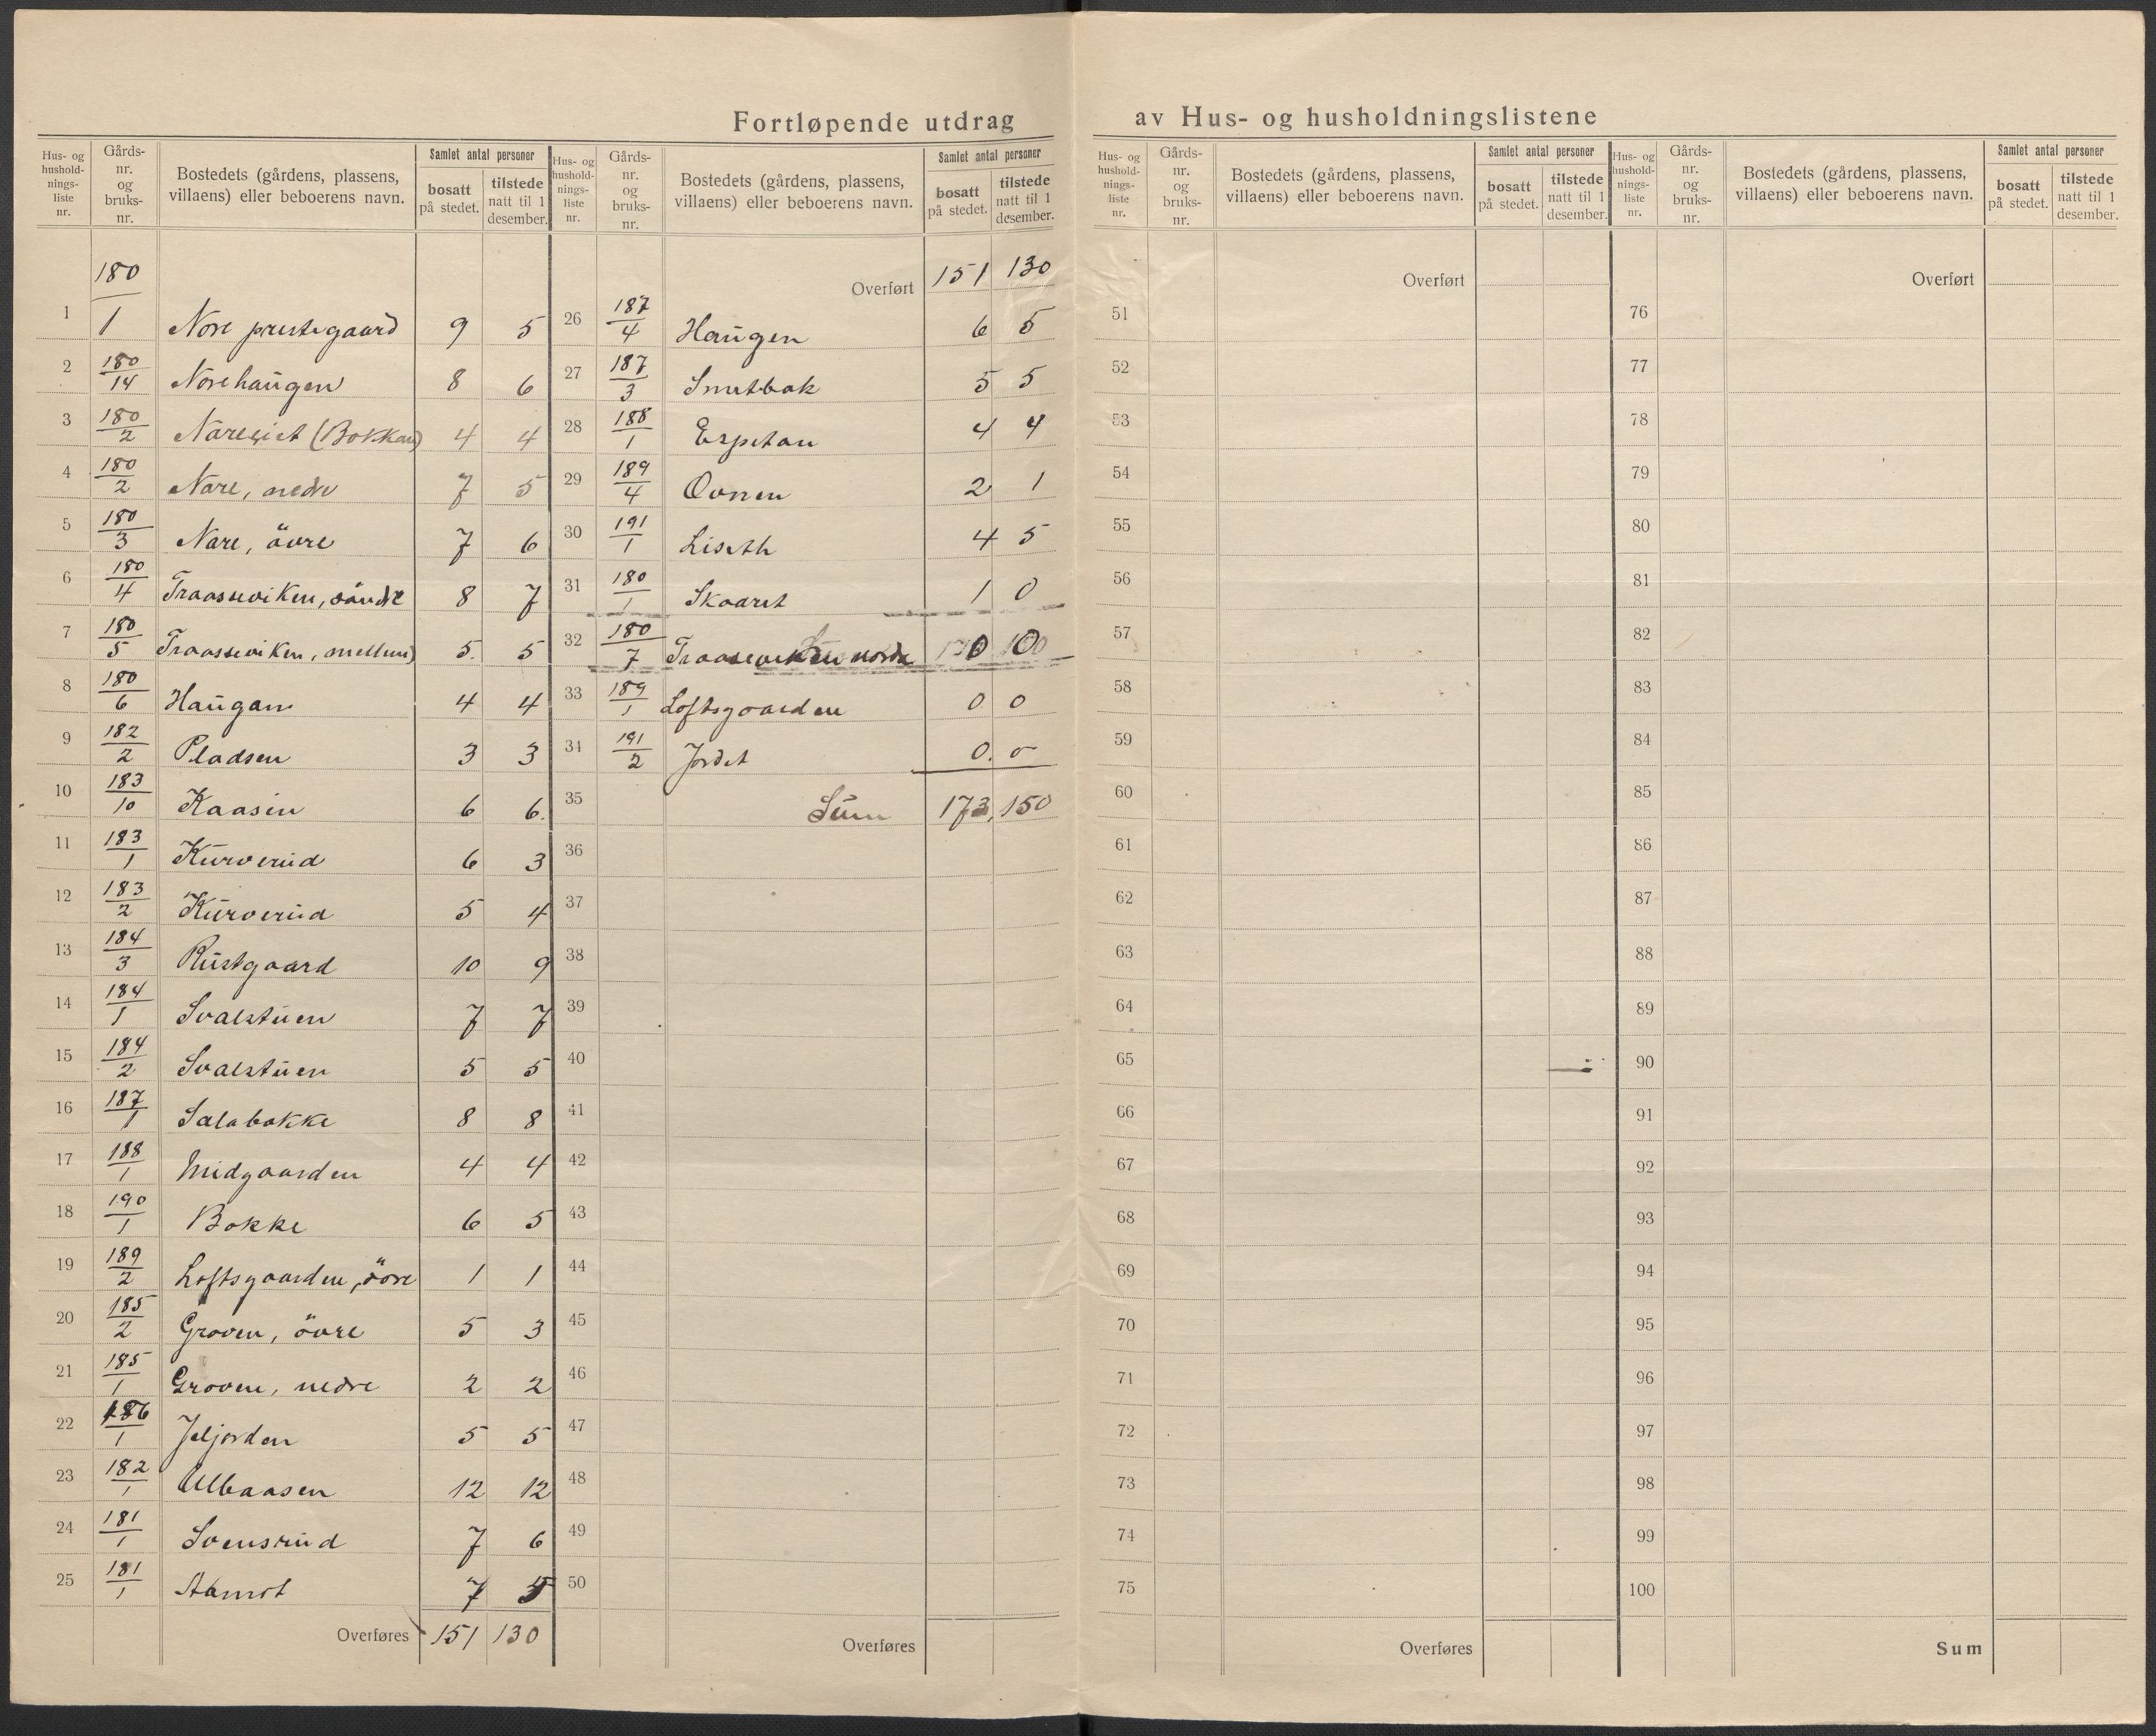 Fortløpende utdrag av Hus- og husholdningslistene
Hus- og hushold- nings- liste nr. Gårds- nr. og bruks- nr. Bostedets (gårdens, plassens, villaens) eller beboerens navn. Samlet antal personer bosatt på stedet. tilstede natt til 1 desember.
1 180/1 Nore prestegaard 9 5
2 180/14 Norehaugen 8 6
3 180/2 (Bokkau) 4 4
4 180/2 Nore, nedre 7 5
5 180/3 Nore, övre 7 6
6 180/4 Traasseviken, söndre 8 7
7 180/5 Traasseviken, mellum) 5. 5
8 180/6 Haugan 4 4
9 182/2 Pladsen 3 3
10 183/10 Kaasin 6 6.
11 183/1 Kurverud 6 3
12 183/2 Kurverud 5 4
13 184/3 Rustgaard 10 9
14 184/1 Svalstuen 7 7
15 184/2 Svalstuen 5 5
16 187/1 Salabakke 8 8
17 188/1 Midgaarden 4 4
18 190/1 Bakke 6 5
19 189/2 Loftsgaarden, övre 1 1
20 185/2 Groven, övre 5 3
21 185/1 Groven, nedre 2 2
22 186/1 Jeljorden 5 5
23 182/1 Ulbaasen 12 12
24 181/1 Svensrud 7 6
25 181/1 Aamot 7 5
Overføres 151 130
Hus- og hushold- nings- liste nr. Gårds- nr. og bruks- nr. Bostedets (gårdens, plassens, villaens) eller beboerens navn. Samlet antal personer bosatt på stedet. tilstede natt til 1 desember.
Overført 151 130
26 187/4 Haugen 6 5
27 187/3 Smetbak 5 5
28 188/1 Espetau 4 4
29 189/4 Ovnen 2 1
30 191/1 Liseth 4 5
31 180/1 Skaaret 1 0
32 180/7 Traaseviken nordre 0 0
33 189/1 Loftsgaarden 0 0
34 191/2 Jordet 0. 0
35 Sum 173, 150
36
37
38
39
40
41
42
43
44
45
46
47
48
49
50
Overføres
Hus- og hushold- nings- liste nr. Gårds- nr. og bruks- nr. Bostedets (gårdens, plassens, villaens) eller beboerens navn. Samlet antal personer bosatt på stedet. tilstede natt til 1 desember.
Overført
51
52
53
54
55
56
57
58
59
60
61
62
63
64
65
66
67
68
69
70
71
72
73
74
75
Overføres
Hus- og hushold- nings- liste nr. Gårds- nr. og bruks- nr. Bostedets (gårdens, plassens, villaens) eller beboerens navn. Samlet antal personer bosatt på stedet. tilstede natt til 1 desember.
Overført
76
77
78
79
80
81
82
83
84
85
86
87
88
89
90
91
92
93
94
95
96
97
98
99
100
Sum